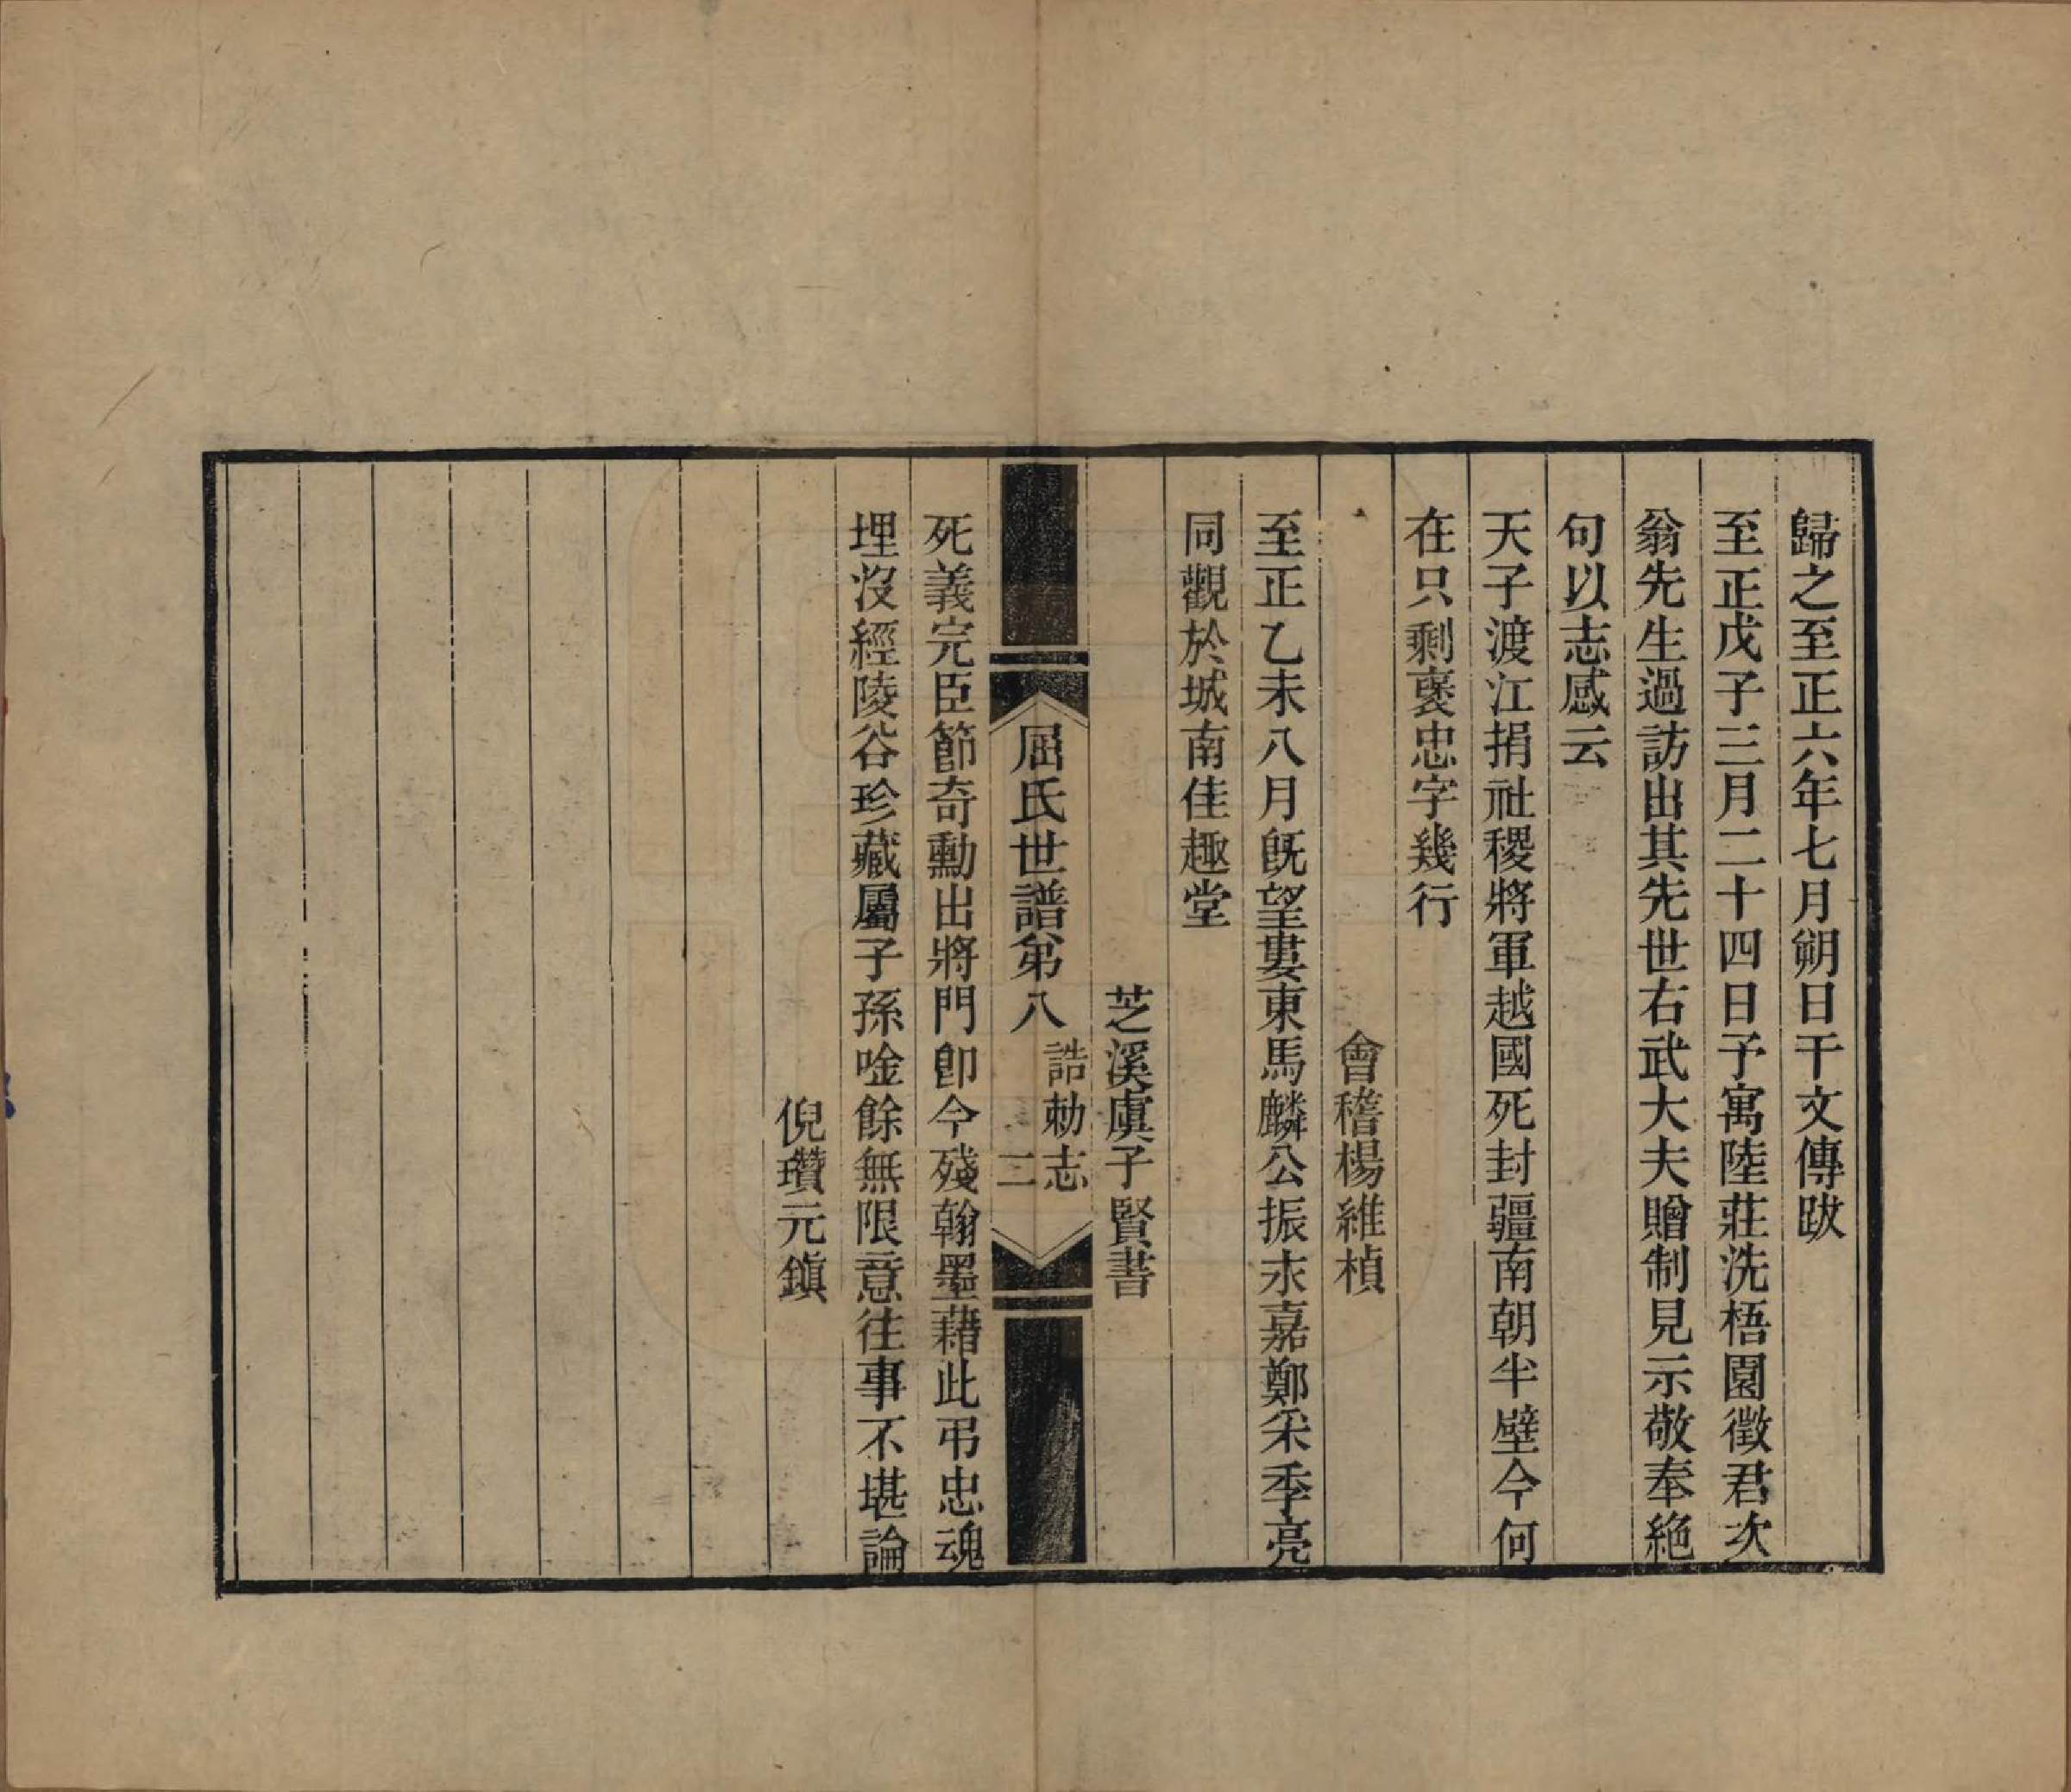 歸之至正六年七月朔日干文傳跋
至正戊子三月二十四日予寓陸莊洗梧園徵君次
翁先生過訪出其先世右武大夫贈制見示敬奉絶
句以志感云
天子渡江捐社稷將軍越國死封疆南朝半壁今何
在只剩褒忠字幾行
會稽楊維楨
至正乙未八月旣望婁東馬麟公振永嘉鄭采季亮
同觀於城南佳趣堂
芝溪虞子賢書
屈氏世譜第八
誥勅志
二
死義完臣節奇勳出將門卽今殘翰墨藉此弔忠魂
埋沒經陵谷珍藏屬子孫唫餘無限意往事不堪論
倪瓚元鎭